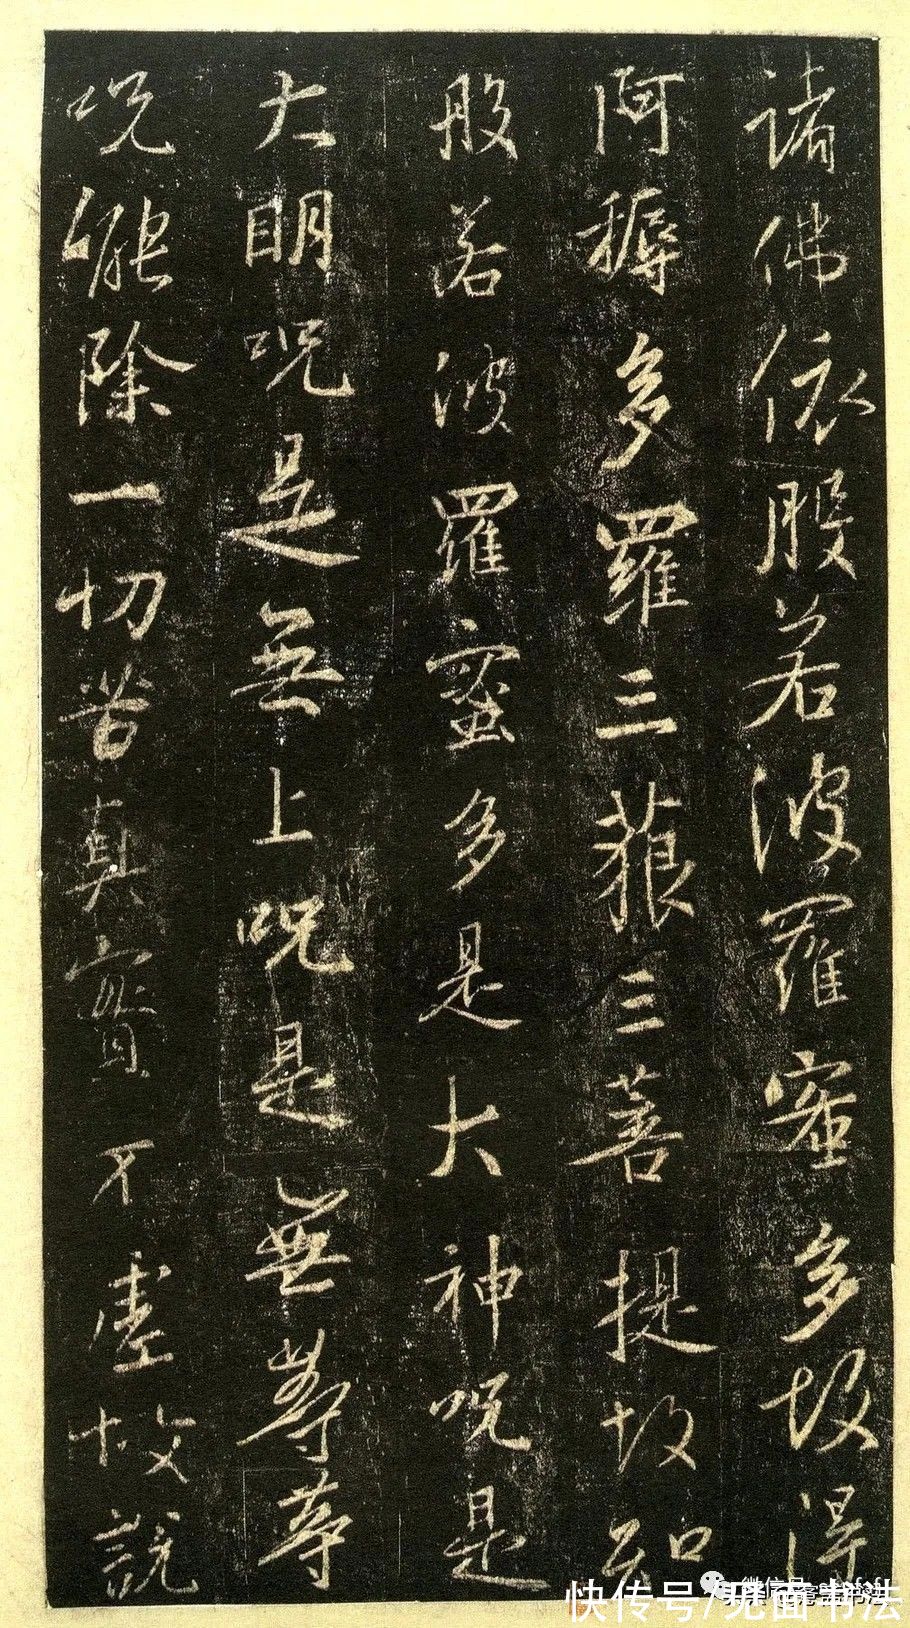 諸佛依般若波羅蜜多故得
阿耨多羅三藐三菩提故知
般若波羅蜜多是大神呪是
大明呪是無上呪是無等等
呪能除一切苦真實不虛故說
快传号/见面书法